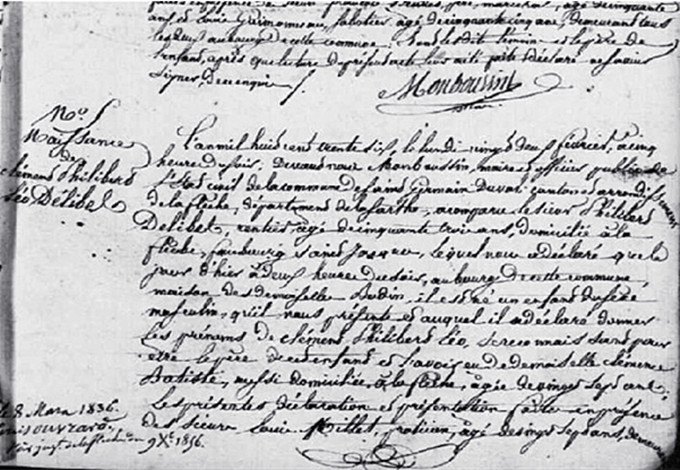 ans et Louis Guimonneau, sabotier, agé de cinquante cinq ans, demeurant tous
les deux au bourg de cette commune; tous les dits témoins et le père de
l'enfant, après que lecture du présent acte leur ait faite déclaré ne savoir
signer, de ce enquis
Monboussin
maire
N° 5
Naissance
de
Clément Philibert
Léo Délibes
L'an mil huit cent trente six, le lundi vingt deux février, à cinq
heure du soir. Devant nous Monboussin, maire et officier public de
l'état civil de la commune de Saint Germain du val canton et arrondissement
de la flèche, département de la sarthe, a comparu le sieur Philibert
Delibes, rentier, agé de cinquante trois ans, domicilié à la
flèche, faubourg saint Jacques, lequel nous a déclaré que le
jour d'hier à deux heure du soir, au bourg de cette commune,
maison des demoiselles Audin, il est né un enfant du sexe
masculin, qu'il nous présente et auquel il a déclaré donner
les prénoms de clément Philibert Léo, se reconnaissant pour
être le père de cet enfant et l'avoir eu de demoiselle clémence
Batiste, aussi domiciliée à la flèche, agée de vingt sept ans.
Les présentes déclaration et présentation faites en présence
des sieurs Louis Millet, praticien, agé de vingt sept ans, demeurant
le 8 Mars 1836.
Louis ouvrard
9 Xbre 1856.